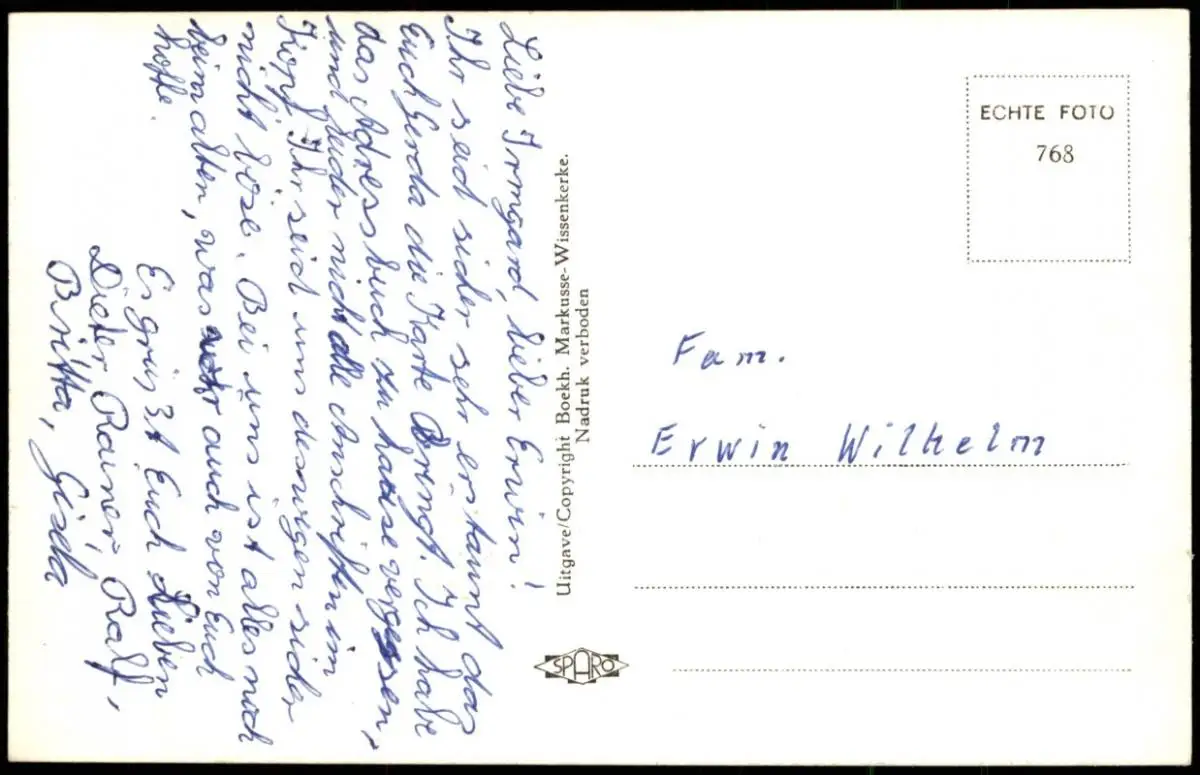 Liebe Irmgard, lieber Erwin!
Ihr seid sicher sehr erstaunt das
Euch Gerda die Karte bringt. Ich habe
das Adressbuch zu hause vergessen,
und leider nicht alle Anschriften im
Kopf. Ihr seid uns deswegen sicher
nicht böse. Bei uns ist alles noch
beim alten, was auch von Euch
hoffe.
Es grüszt Euch Lieben
Dieter, Rainer, Ralf,
Britta, Gisela
Uitgave/Copyright Boekh. Markusse-Wissenkerke.
Nadruk verboden
SPARO
ECHTE FOTO
768
Fam.
Erwin Wilhelm